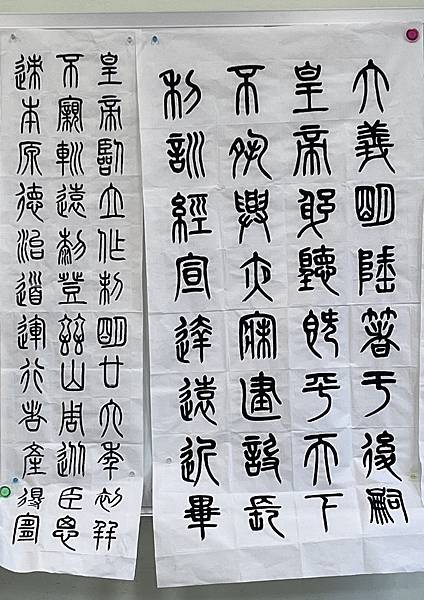 大義明陲箸于後嗣
皇帝躬聽既平天下
不夙興夜寐建設長
利訓經宣達遠近畢
皇帝臨立作制明廿六年初并
不親軔遠黎登茲山周巡臣思
迹本原德治道運行者產得宜